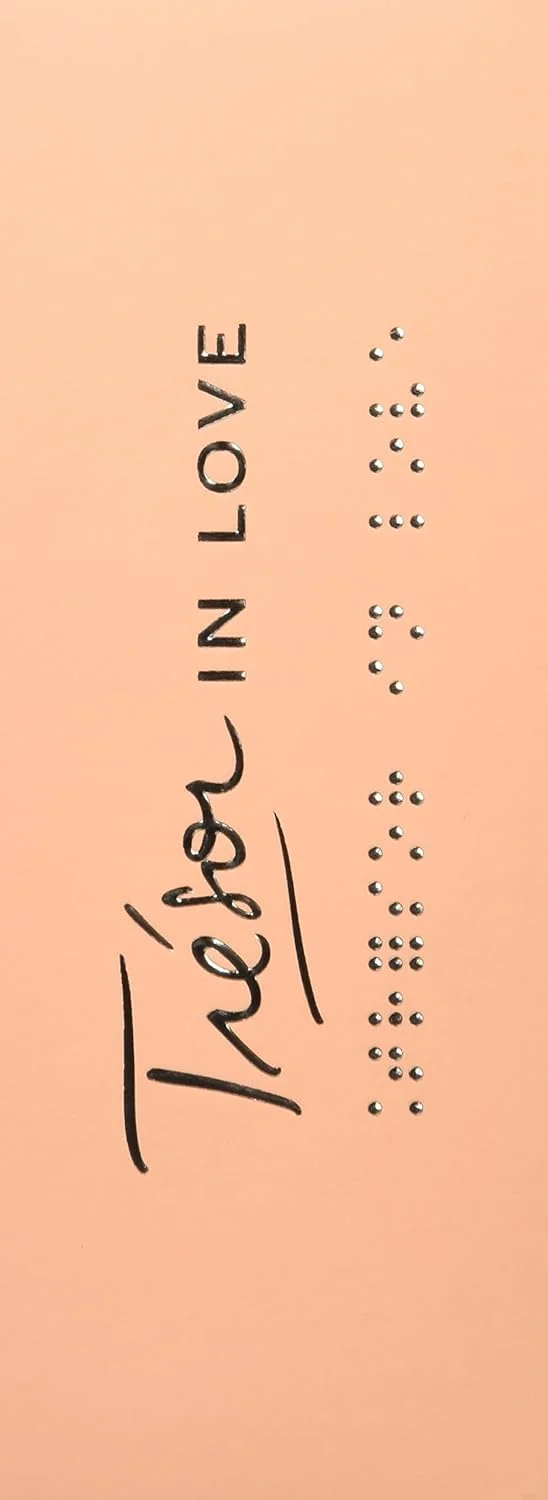 Trésor IN LOVE
⠨⠞⠗⠿⠎⠕⠗ ⠊⠝ ⠇⠕⠧⠑